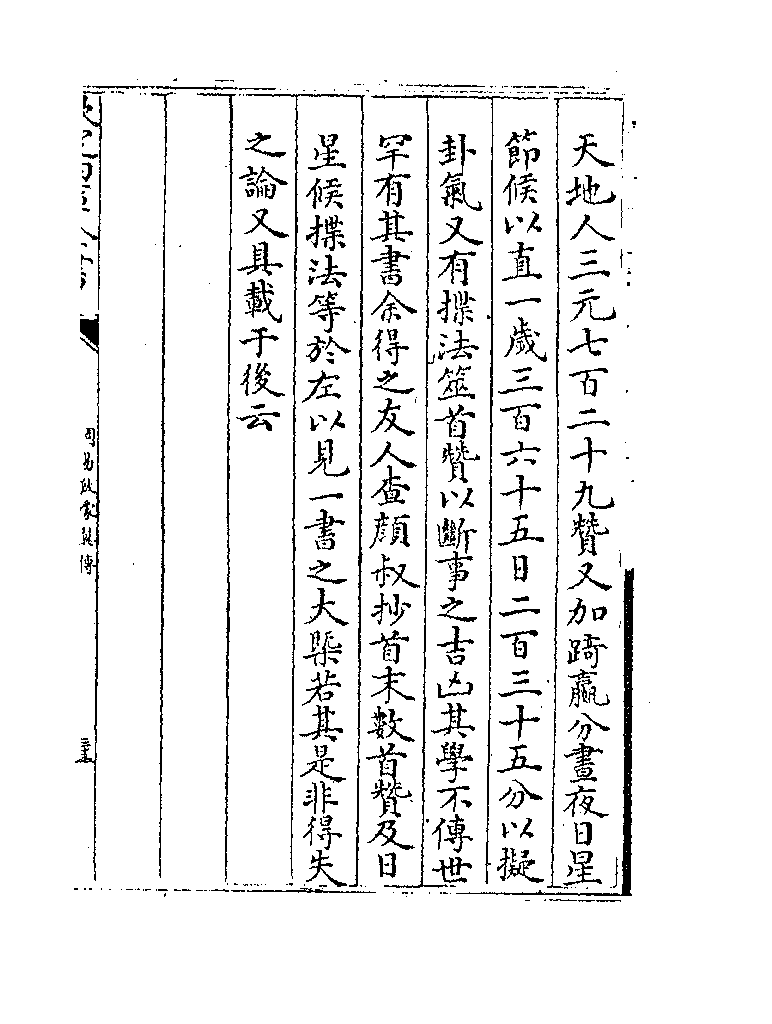 天地人三元七百二十九贊又加踦贏分晝夜日星
節候以直一歲三百六十五日二百三十五分以擬
卦氣又有揲法筮首贊以斷事之吉凶其學不傳世
罕有其書余得之友人查顔叔抄首末數首贊及日
星候揲法等於左以見一書之大槩若其是非得失
之論又具載于後云
周易啟蒙翼傳